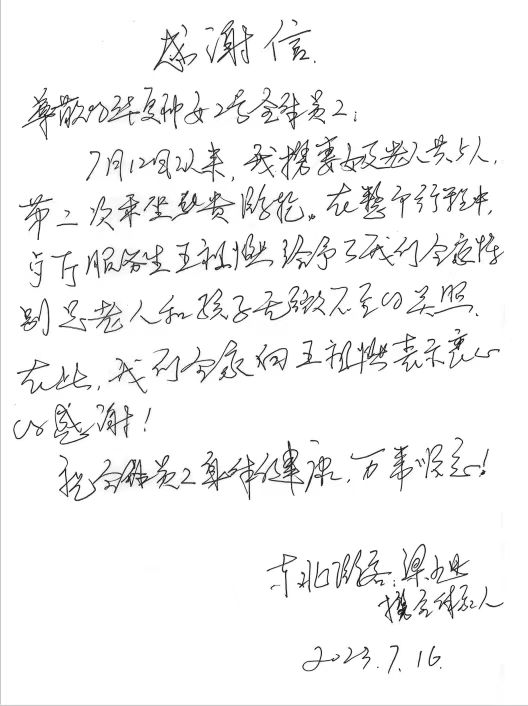 感谢信
尊敬的华夏神女2号全体员工：
7月12日以来，我携妻女及老人共5人，
第二次乘坐贵游轮。在整个行程中，
餐厅服务生王祖燃给予了我们全家特
别是老人和孩子无微不至的关照，
在此，我们全家向王祖燃表示衷心
的感谢！
祝全体员工身体健康，万事顺意！
东北游客：梁
携全体家人
2023.7.16.